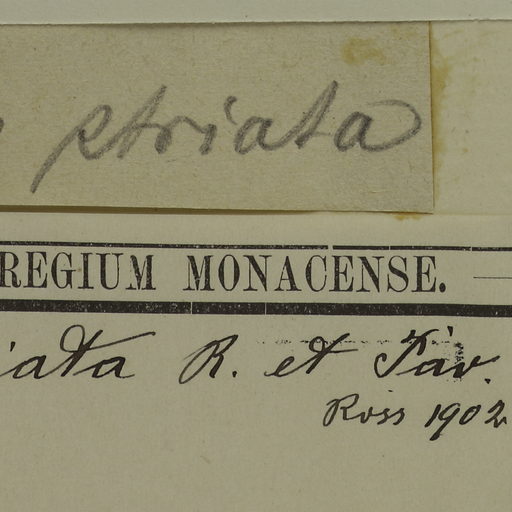 striata
REGIUM MONACENSE.
iata R. et Pav.
Ross 1902